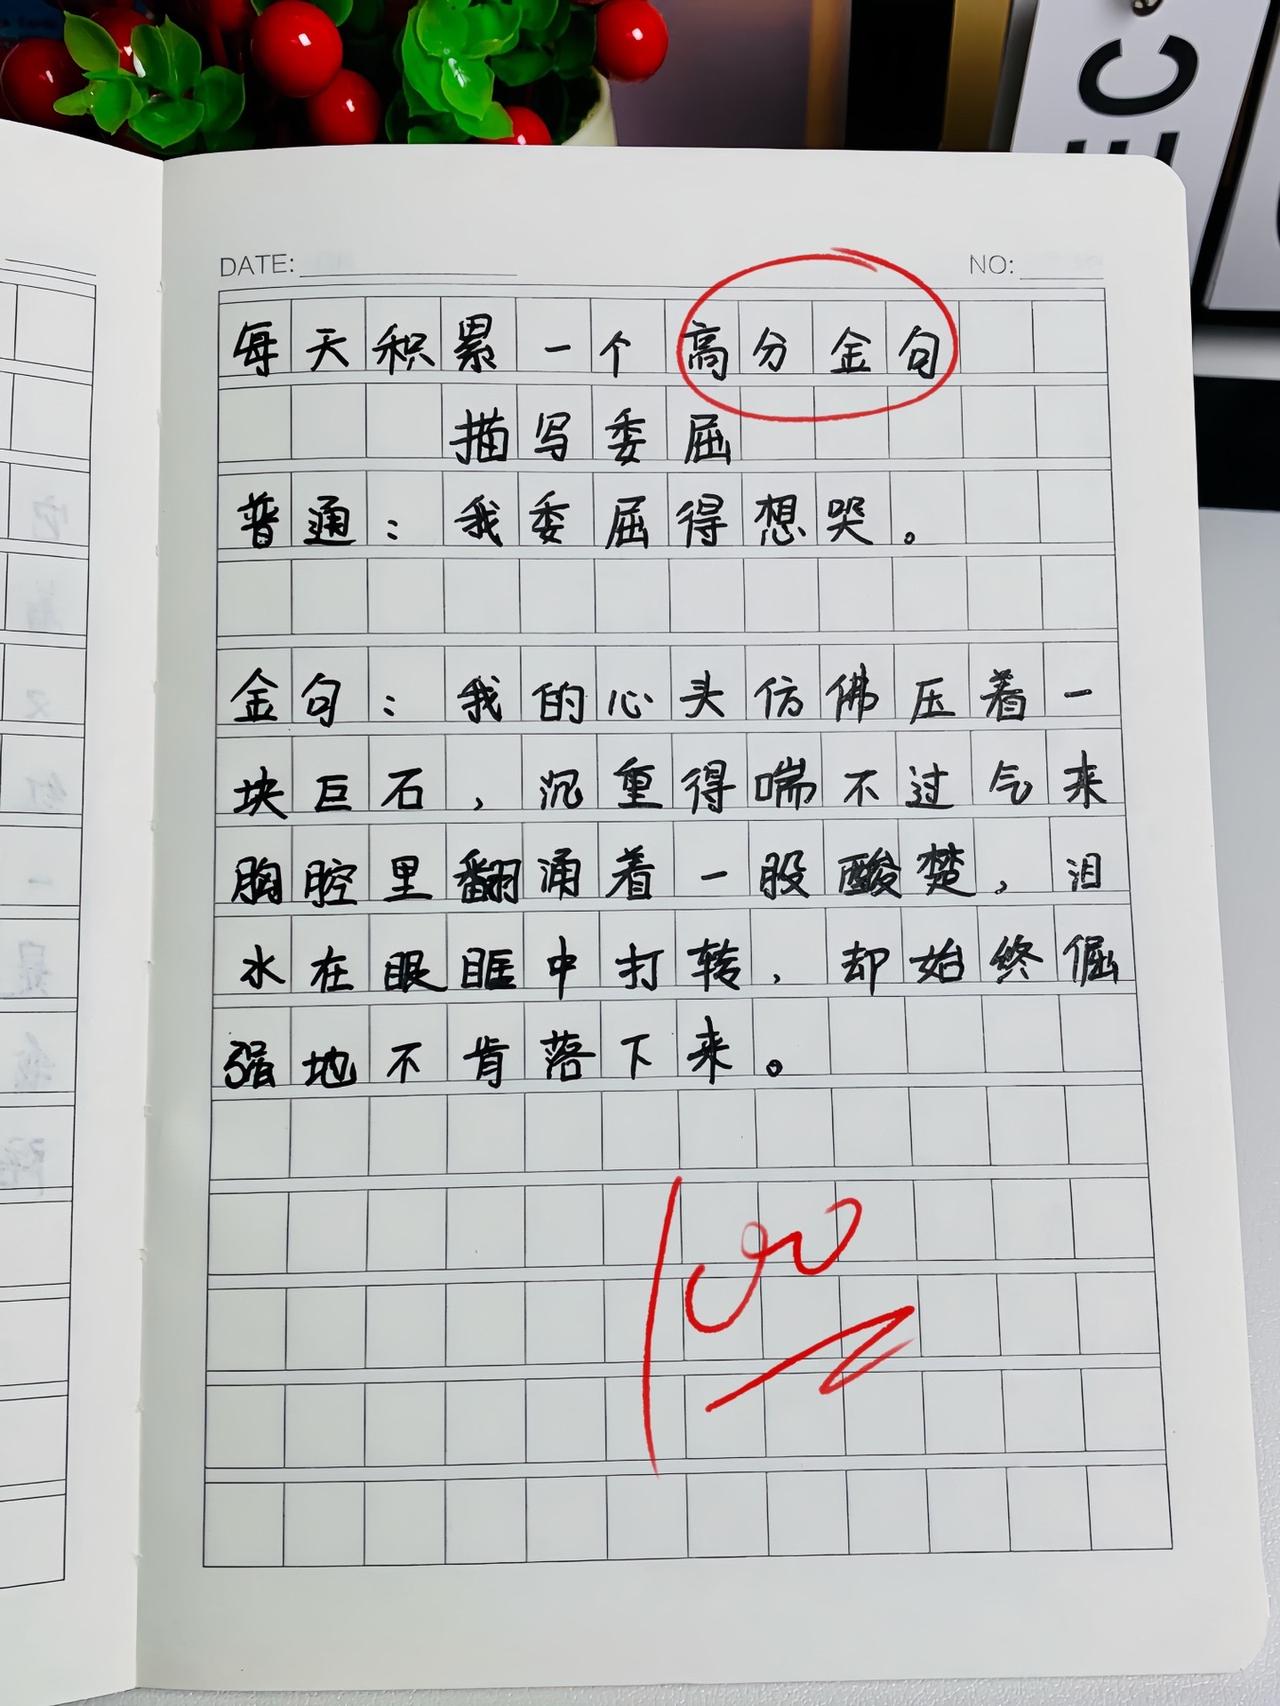 DATE:
NO:
每天积累一个高分金句
描写委屈
普通：我委屈得想哭。
金句：我的心头仿佛压着一
块巨石，沉重得喘不过气来
胸腔里翻涌着一股酸楚，泪
水在眼眶中打转，却始终倔
强地不肯落下来。
100